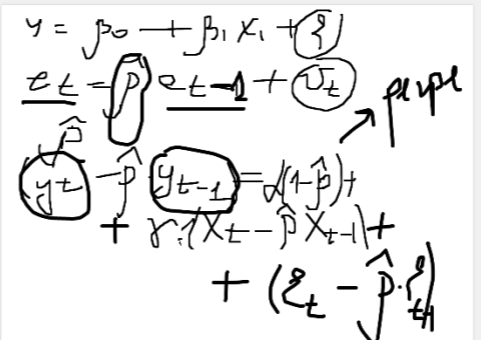 y = β₀ + β₁ x₁ + ξ
e t = ρ̂ e t-1 + υt
ρ̂
yt - ρ̂ yt-1 = α(1-ρ̂)+
+ γ·1(Xt - ρ̂ Xt-1)+
+ (ξt - ρ̂·ξt-1)